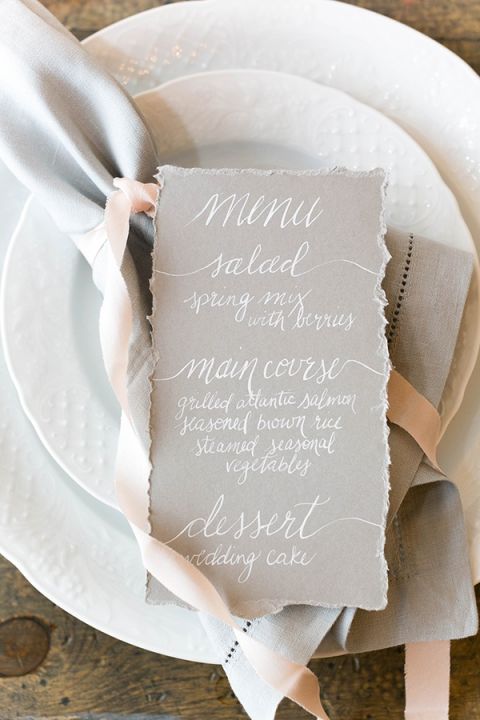 menu
salad
spring mix
with berries
main course
grilled atlantic salmon
seasoned brown rice
steamed seasonal
vegetables
dessert
wedding cake